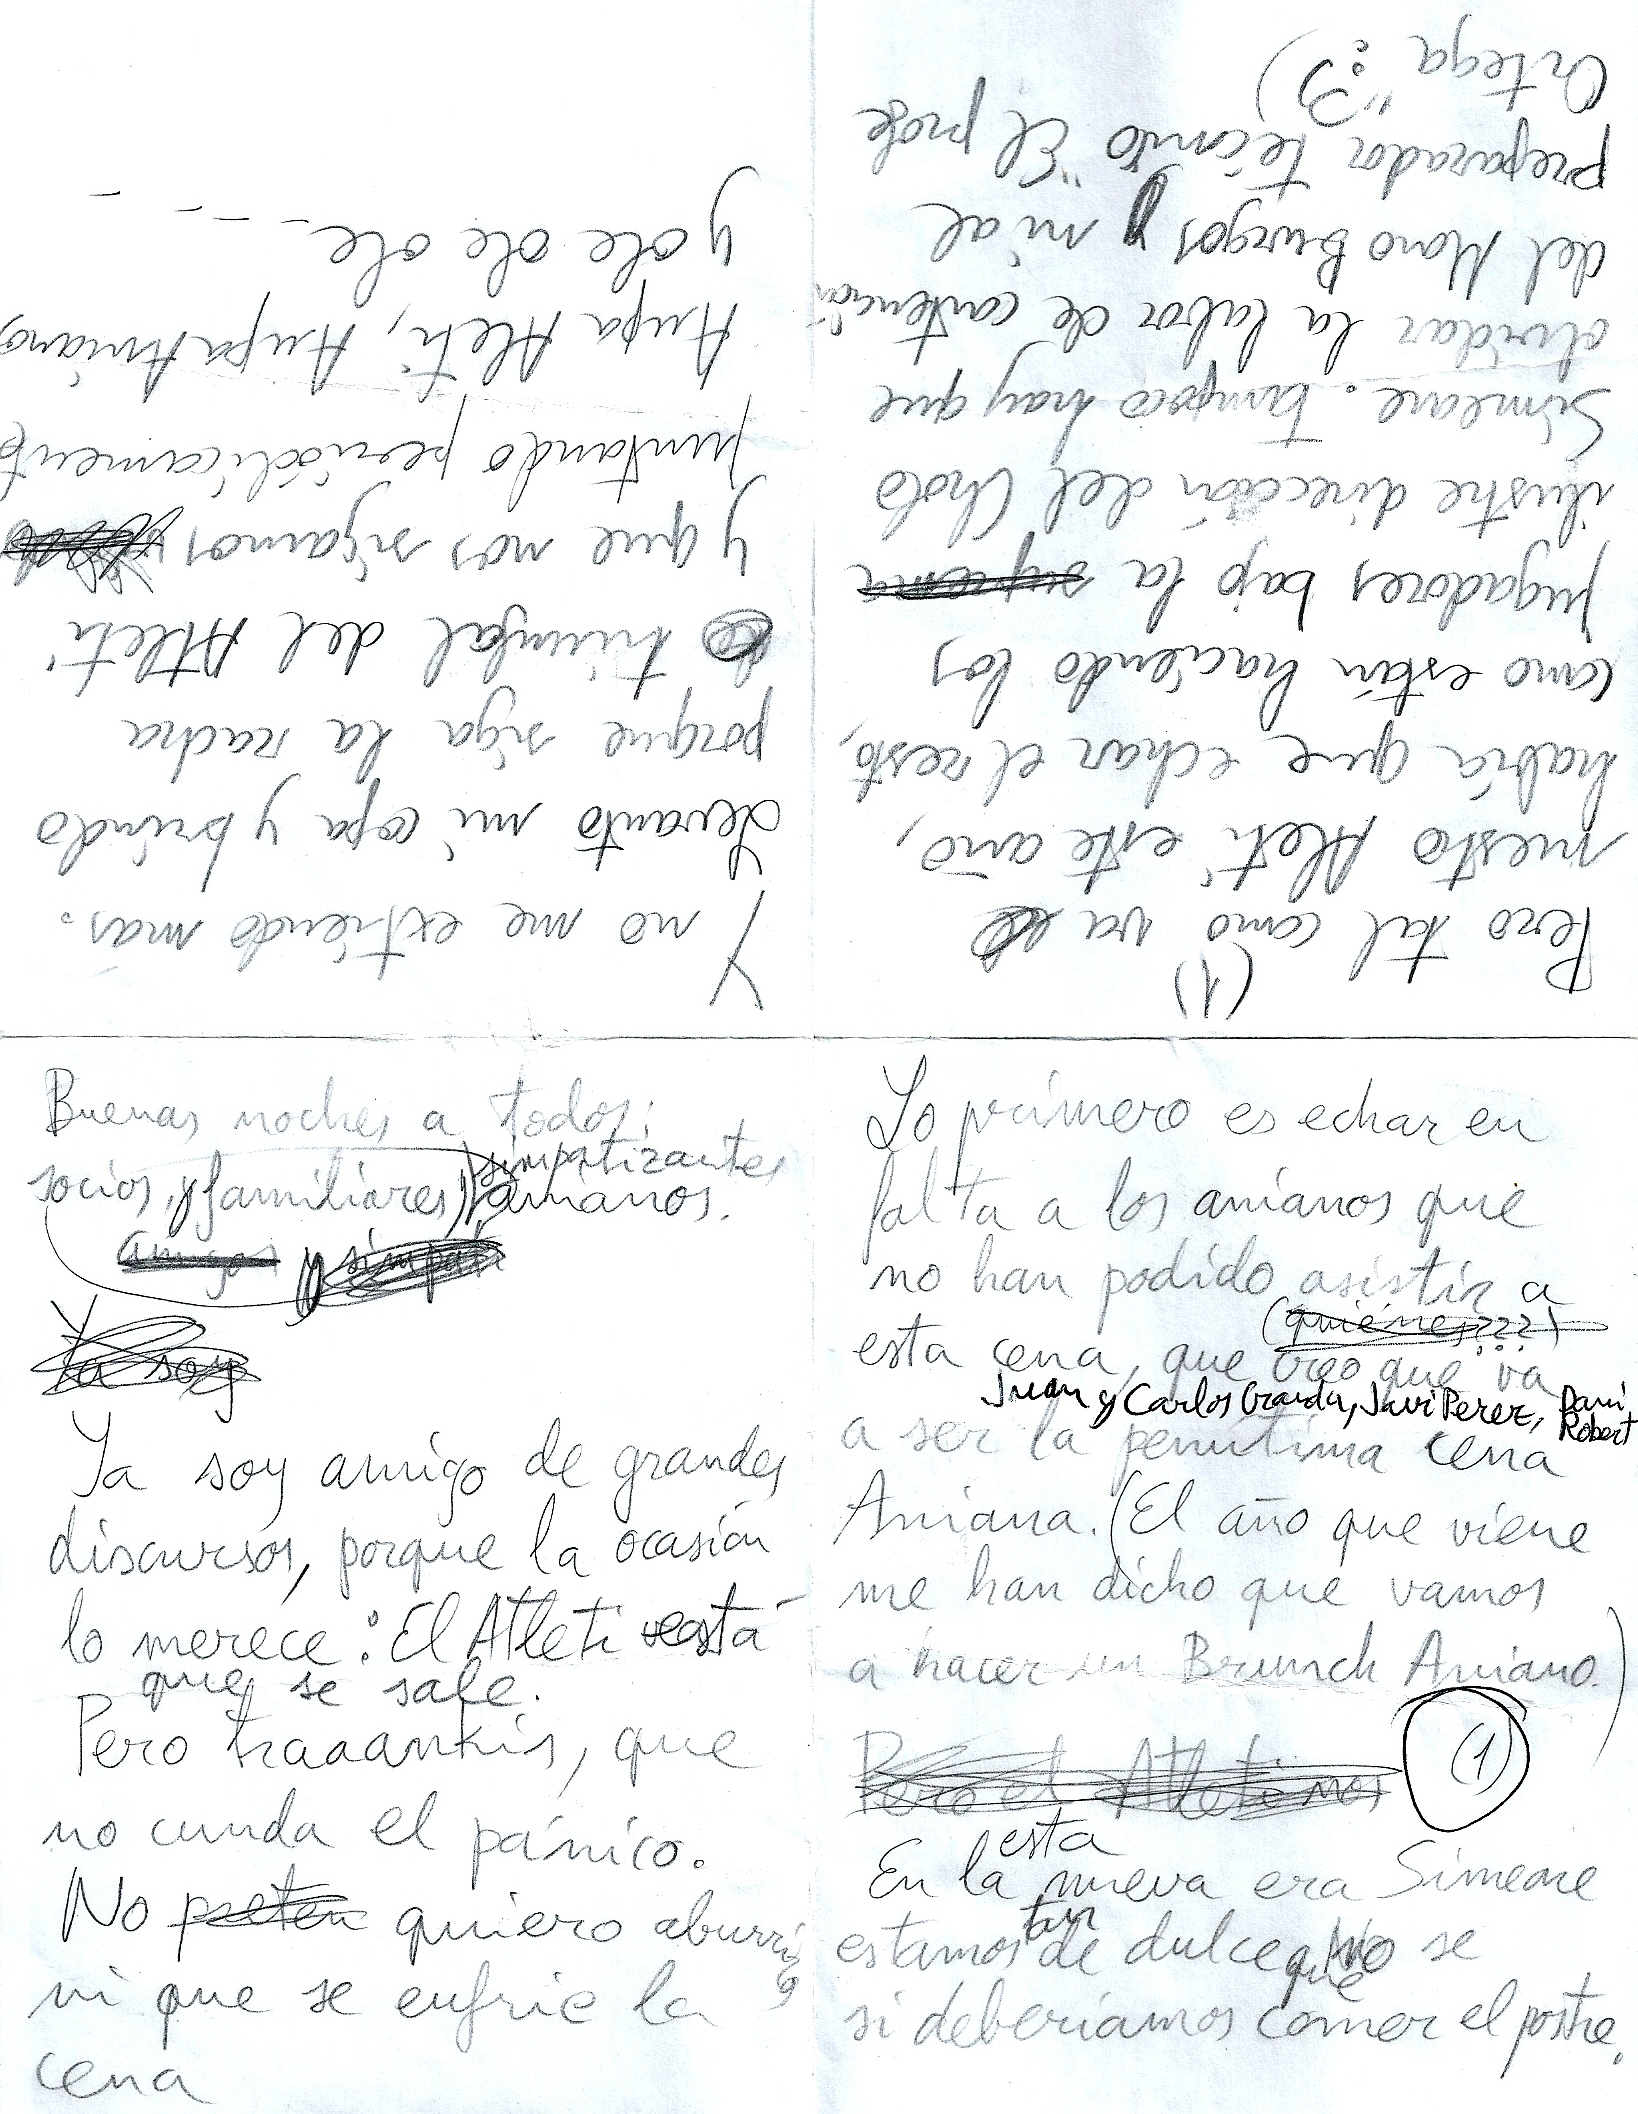 Buenas noches a todos:
simpatizantes
socios, y familiares) y anianos.
amigos y simpati
Ya soy
Ya soy amigo de grandes
discursos, porque la ocasión
lo merece: El Atleti está
que se sale.
Pero traaankis, que
no cunda el pánico.
No preten quiero aburriros
ni que se enfríe la
cena
Lo primero es echar en
falta a los anianos que
no han podido asistir a
(quiénes???)
esta cena, que creo que va
Juan y Carlos Granda, Javi Perez, Dani
Robert
a ser la penúltima cena
Aniana. (El año que viene
me han dicho que vamos
a hacer un Brunch Aniano.)
Pero el Atleti nos (1)
esta
En la nueva era Simeone
tan
estamos de dulce que no se
si deberíamos comer el postre.
(1)
Pero tal como va
nuestro Atleti este año,
habría que echar el resto,
como están haciendo los
jugadores bajo la suprema
ilustre dirección del Cholo
Simeone. Tampoco hay que
olvidar la labor de contención
del Mono Burgos y ni al
preparador físico "El profe
Ortega" :-)
Y no me extiendo más.
Levanto mi copa y brindo
porque siga la racha
triunfal del Atleti
y que nos sigamos
juntando periódicamente
Aupa Atleti, Aupa Anianos
y ole ole ole - - - - -